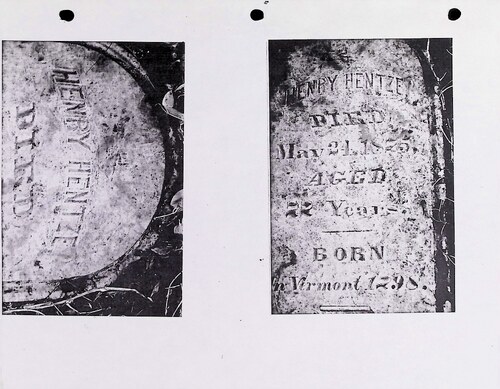 HENRY HENTZE
DIED
HENRY HENTZE
DIED
May 24. 1875.
AGED
77 Years.
BORN
in Vermont 1798.